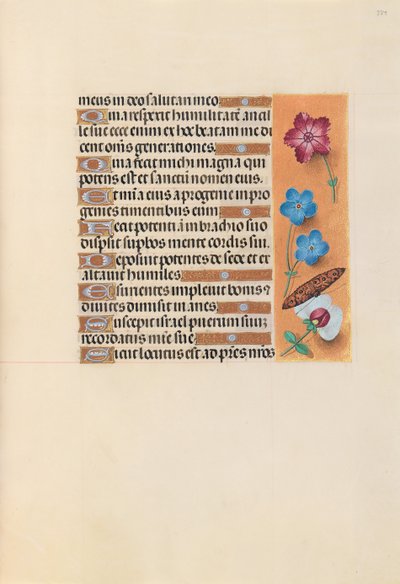 meus in deo salutari meo
Quia respexit humilitatē ancil
le sue ecce enim ex hoc beatam me di
cent om̄s generationes.
Quia fecit michi magna qui
potens est et sanctū nomen eius.
Et mīa eius a progenie in pro
genies timentibus eum
Fecit potentiā in brachio suo
dispsit supbos mente cordis sui.
Deposuit potentes de sede et ex
altauit humiles
Esurientes impleuit bonis ⁊
diuites dimisit inanes.
Suscepit israel puerum suū
recordatus mīe sue
Sicut locutus est ad p̄res n̄ros